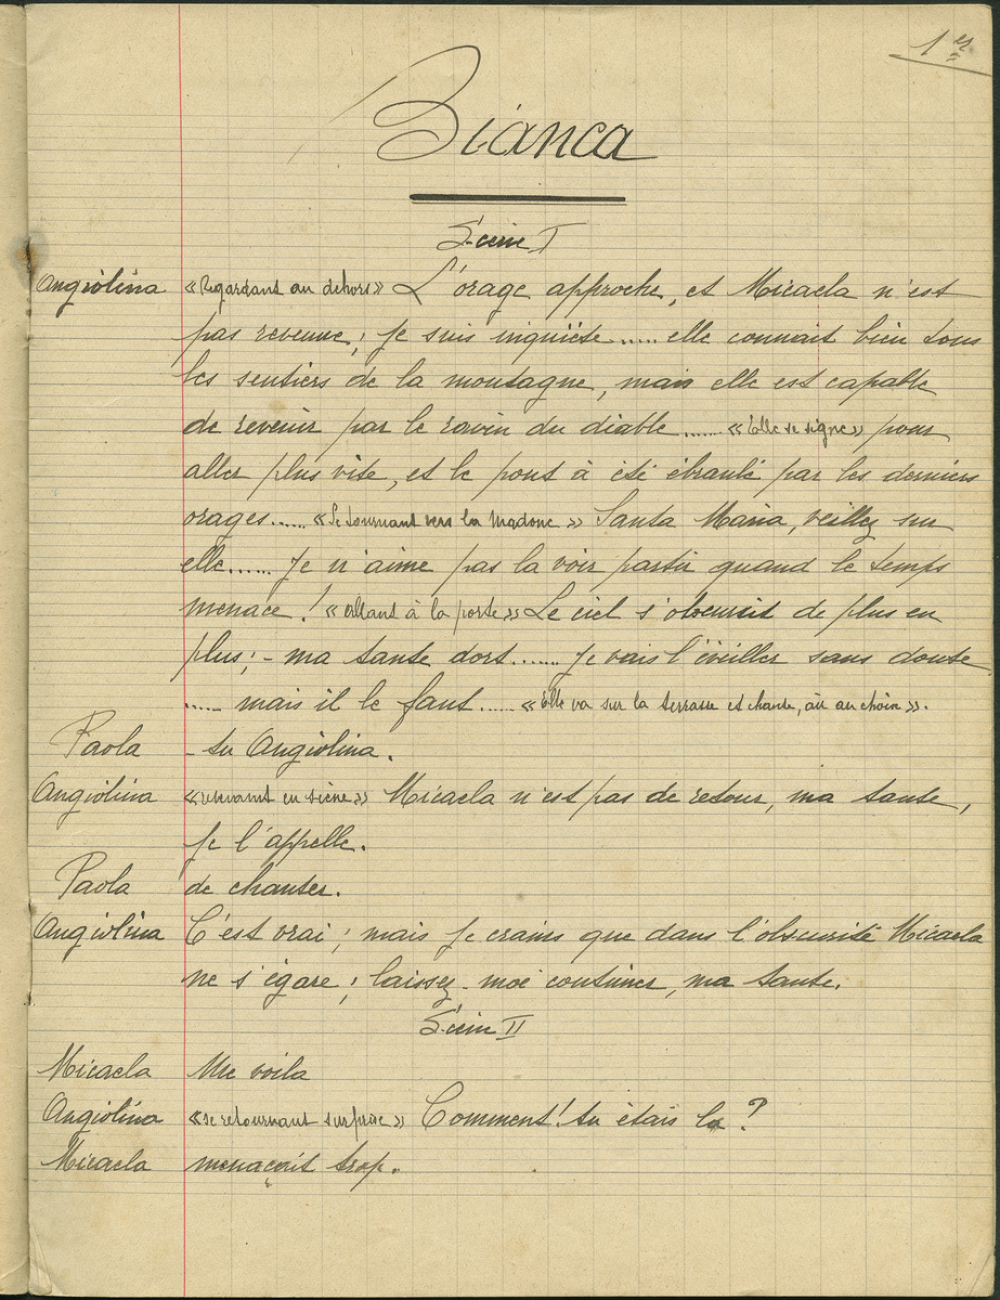 1er
Bianca
Scène I
Angiolina «Regardant au dehors» L'orage approche, et Micaela n'est
pas revenue; je suis inquiète..... elle connait bien tous
les sentiers de la montagne, mais elle est capable
de revenir par le ravin du diable...... «Elle se signe» pour
aller plus vite, et le pont à été ébranlé par les derniers
orages..... «Se tournant vers la Madone» Santa Maria, veillez sur
elle...... Je n'aime pas la voir partir quand le temps
menace! «Allant à la porte» Le ciel s'obscurcit de plus en
plus; - ma tante dort....... Je vais l'éveiller sans doute
..... mais il le faut..... «Elle va sur la terrasse et chante, air au choix».
Paola - tu Angiolina.
Angiolina «revenant en scène» Micaela n'est pas de retour, ma tante,
je l'appelle.
Paola de chanter.
Angiolina C'est vrai; mais je crains que dans l'obscurité Micaela
ne s'égare; laissez-moi continuer, ma tante.
Scène II
Micaela Me voila
Angiolina «se retournant surprise» Comment! tu étais la?
Micaela menaçait trop.